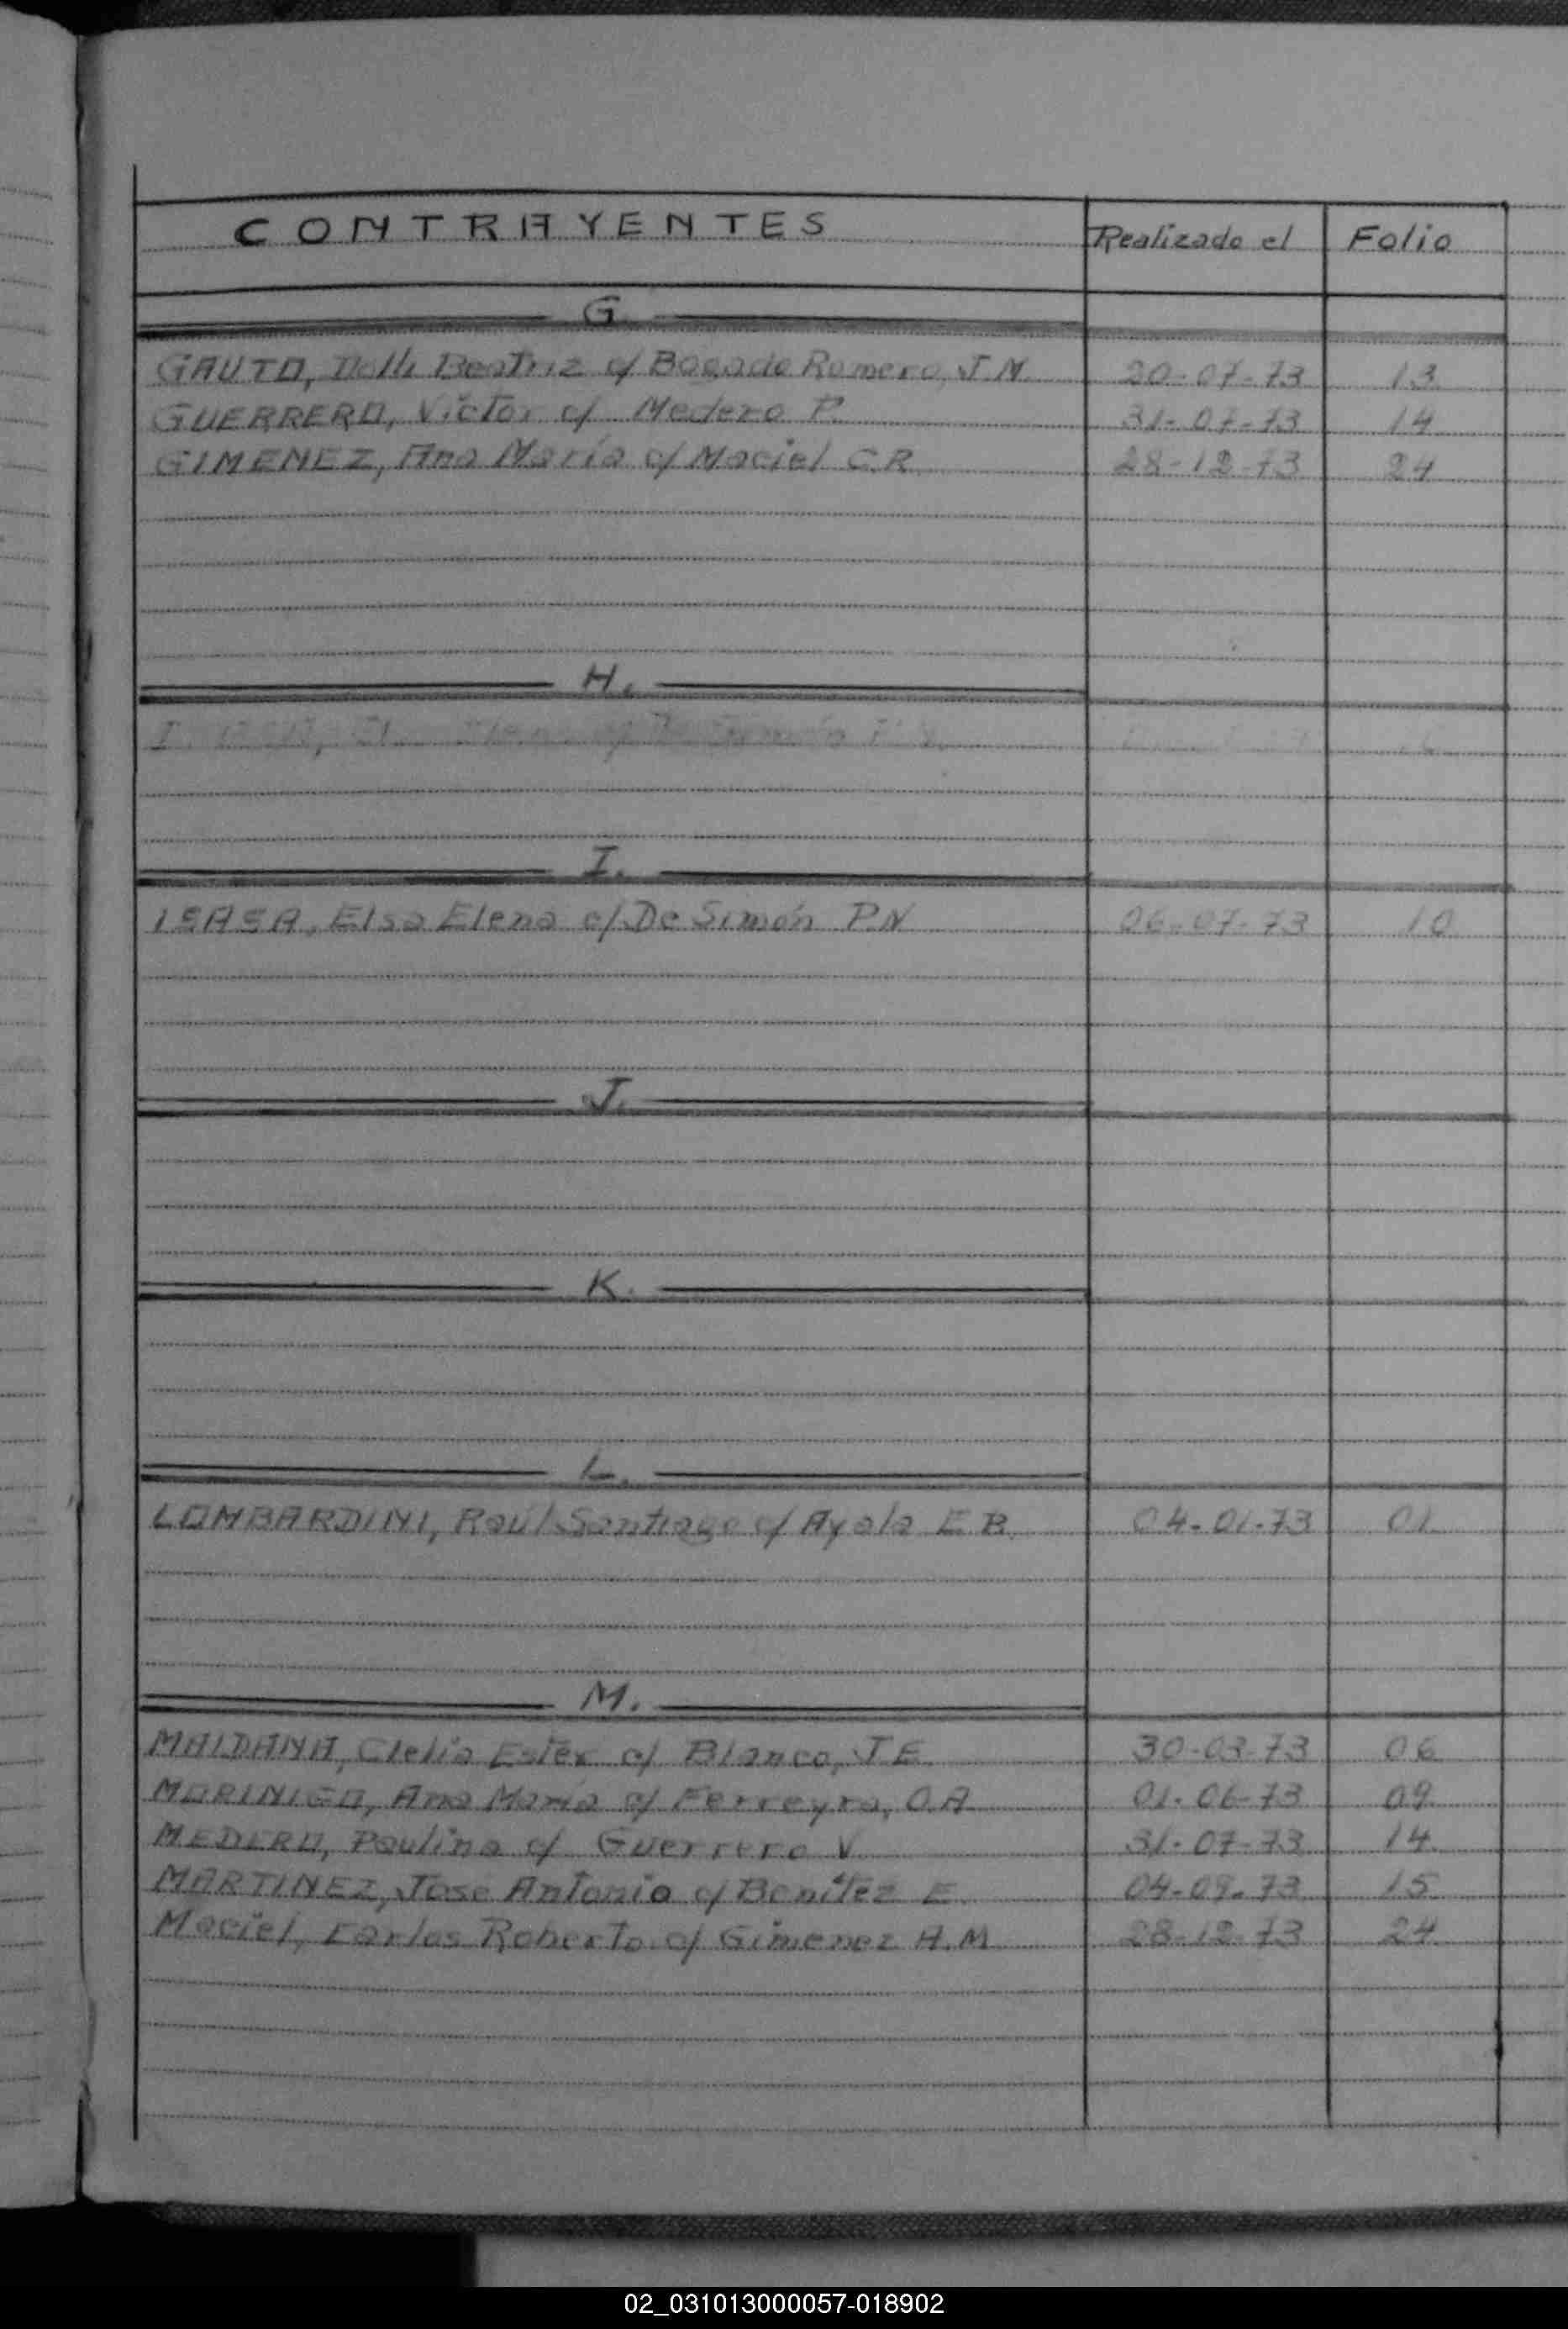 CONTRAYENTES Realizado el Folio
G.
GAUTO, Beatriz c/ Bogado Romero, J.N. 20-07-73 13
GUERRERO, Victor c/ Medero P. 31-07-73 14
GIMENEZ, Ana María c/ Maciel C.R. 28-12-73 24
H.
I.
ISASA, Elsa Elena c/ De Simón P.N 06-07-73 10
J.
K.
L.
LOMBARDINI, Raúl Santiago c/ Ayala E.B. 04-01-73 01
M.
MAIDANA, Clelia Ester c/ Blanco, J.E. 30-03-73 06
MORINIGO, Ana María c/ Ferreyra, O.A 01-06-73 09
MEDERO, Paulina c/ Guerrero V. 31-07-73 14
MARTINEZ, Jose Antonio c/ Benitez E. 04-09-73 15
Maciel, Carlos Roberto c/ Gimenez A.M 28-12-73 24
02_031013000057-018902